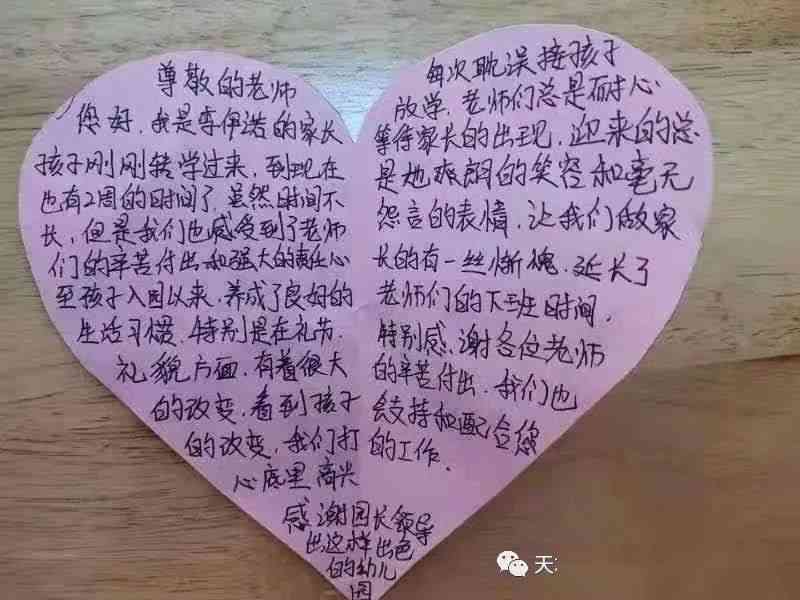 尊敬的老师
您好,我是李伊诺的家长
孩子刚刚转学过来,到现在
也有2周的时间了,虽然时间不
长,但是我们也感受到了老师
们的辛苦付出和强大的责任心
至孩子入园以来,养成了良好的
生活习惯,特别是在礼节,
礼貌方面,有着很大
的改变,看到孩子
的改变,我们打
心底里高兴
每次耽误接孩子
放学,老师们总是耐心
等待家长的出现,迎来的总
是她爽朗的笑容和毫无
怨言的表情,让我们做家
长的有一丝惭愧,延长了
老师们的下班时间,
特别感谢各位老师
的辛苦付出,我们也
会支持和配合您
的工作.
感谢园长领导
出这样出色
的幼儿
园
天